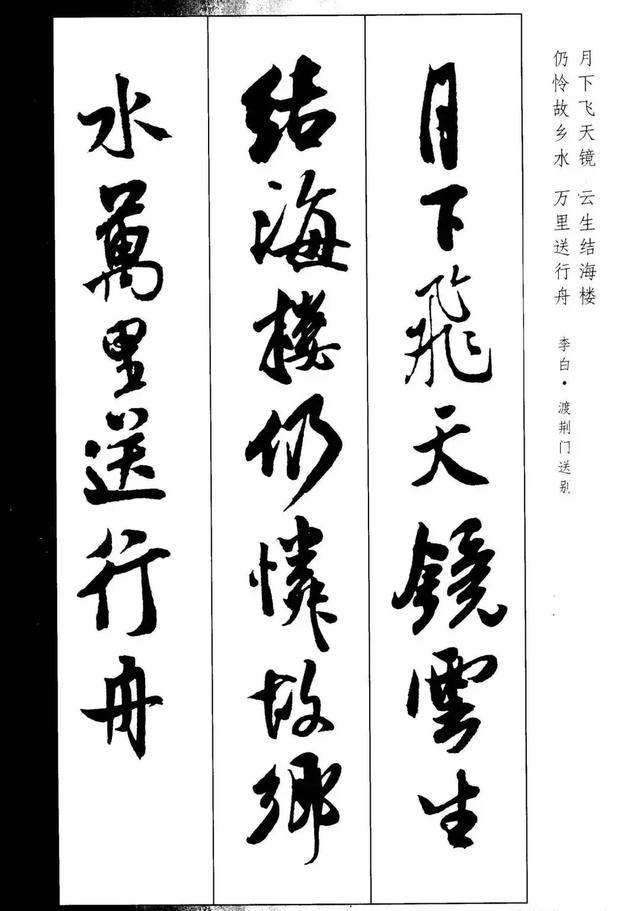 月下飞天镜 云生结海楼
仍怜故乡水 万里送行舟
李白·渡荆门送别
月下飛天鏡雲生
结海楼仍憐故鄉
水萬里送行舟